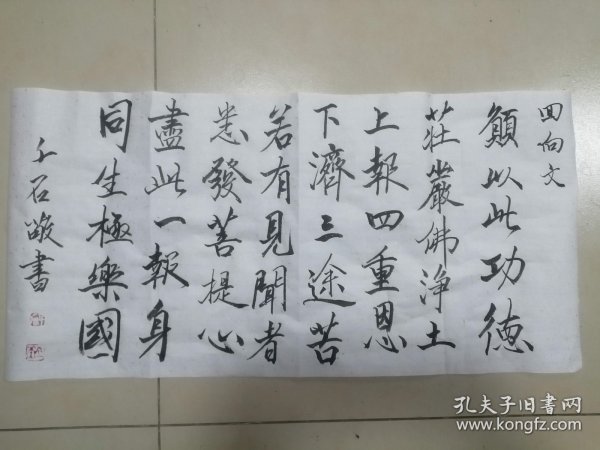 回向文
願以此功德
莊嚴佛淨土
上報四重恩
下濟三途苦
若有見聞者
悉發菩提心
盡此一報身
同生極樂國
千石敬書
孔夫子旧書网
www.kongfz.com